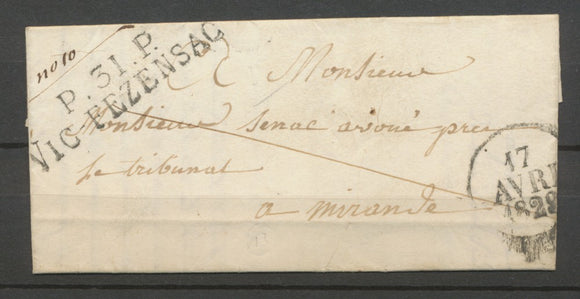 no 10
P. 31. P.
VIC-FEZENSAC
Monsieur
Monsieur Senac avoué pres
le tribunal
a mirande
17
AVRI
1829